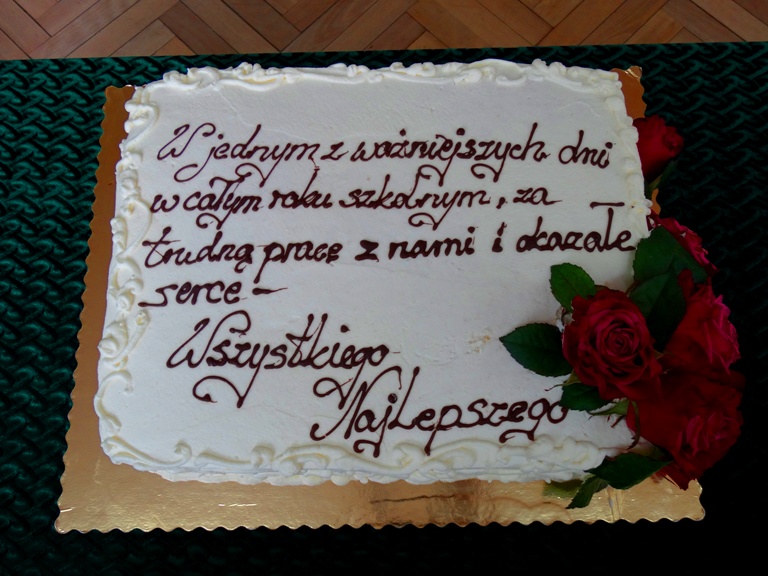 W jednym z ważniejszych dni
w całym roku szkolnym, za
trudną pracę z nami i okazałe
serce –
Wszystkiego
Najlepszego